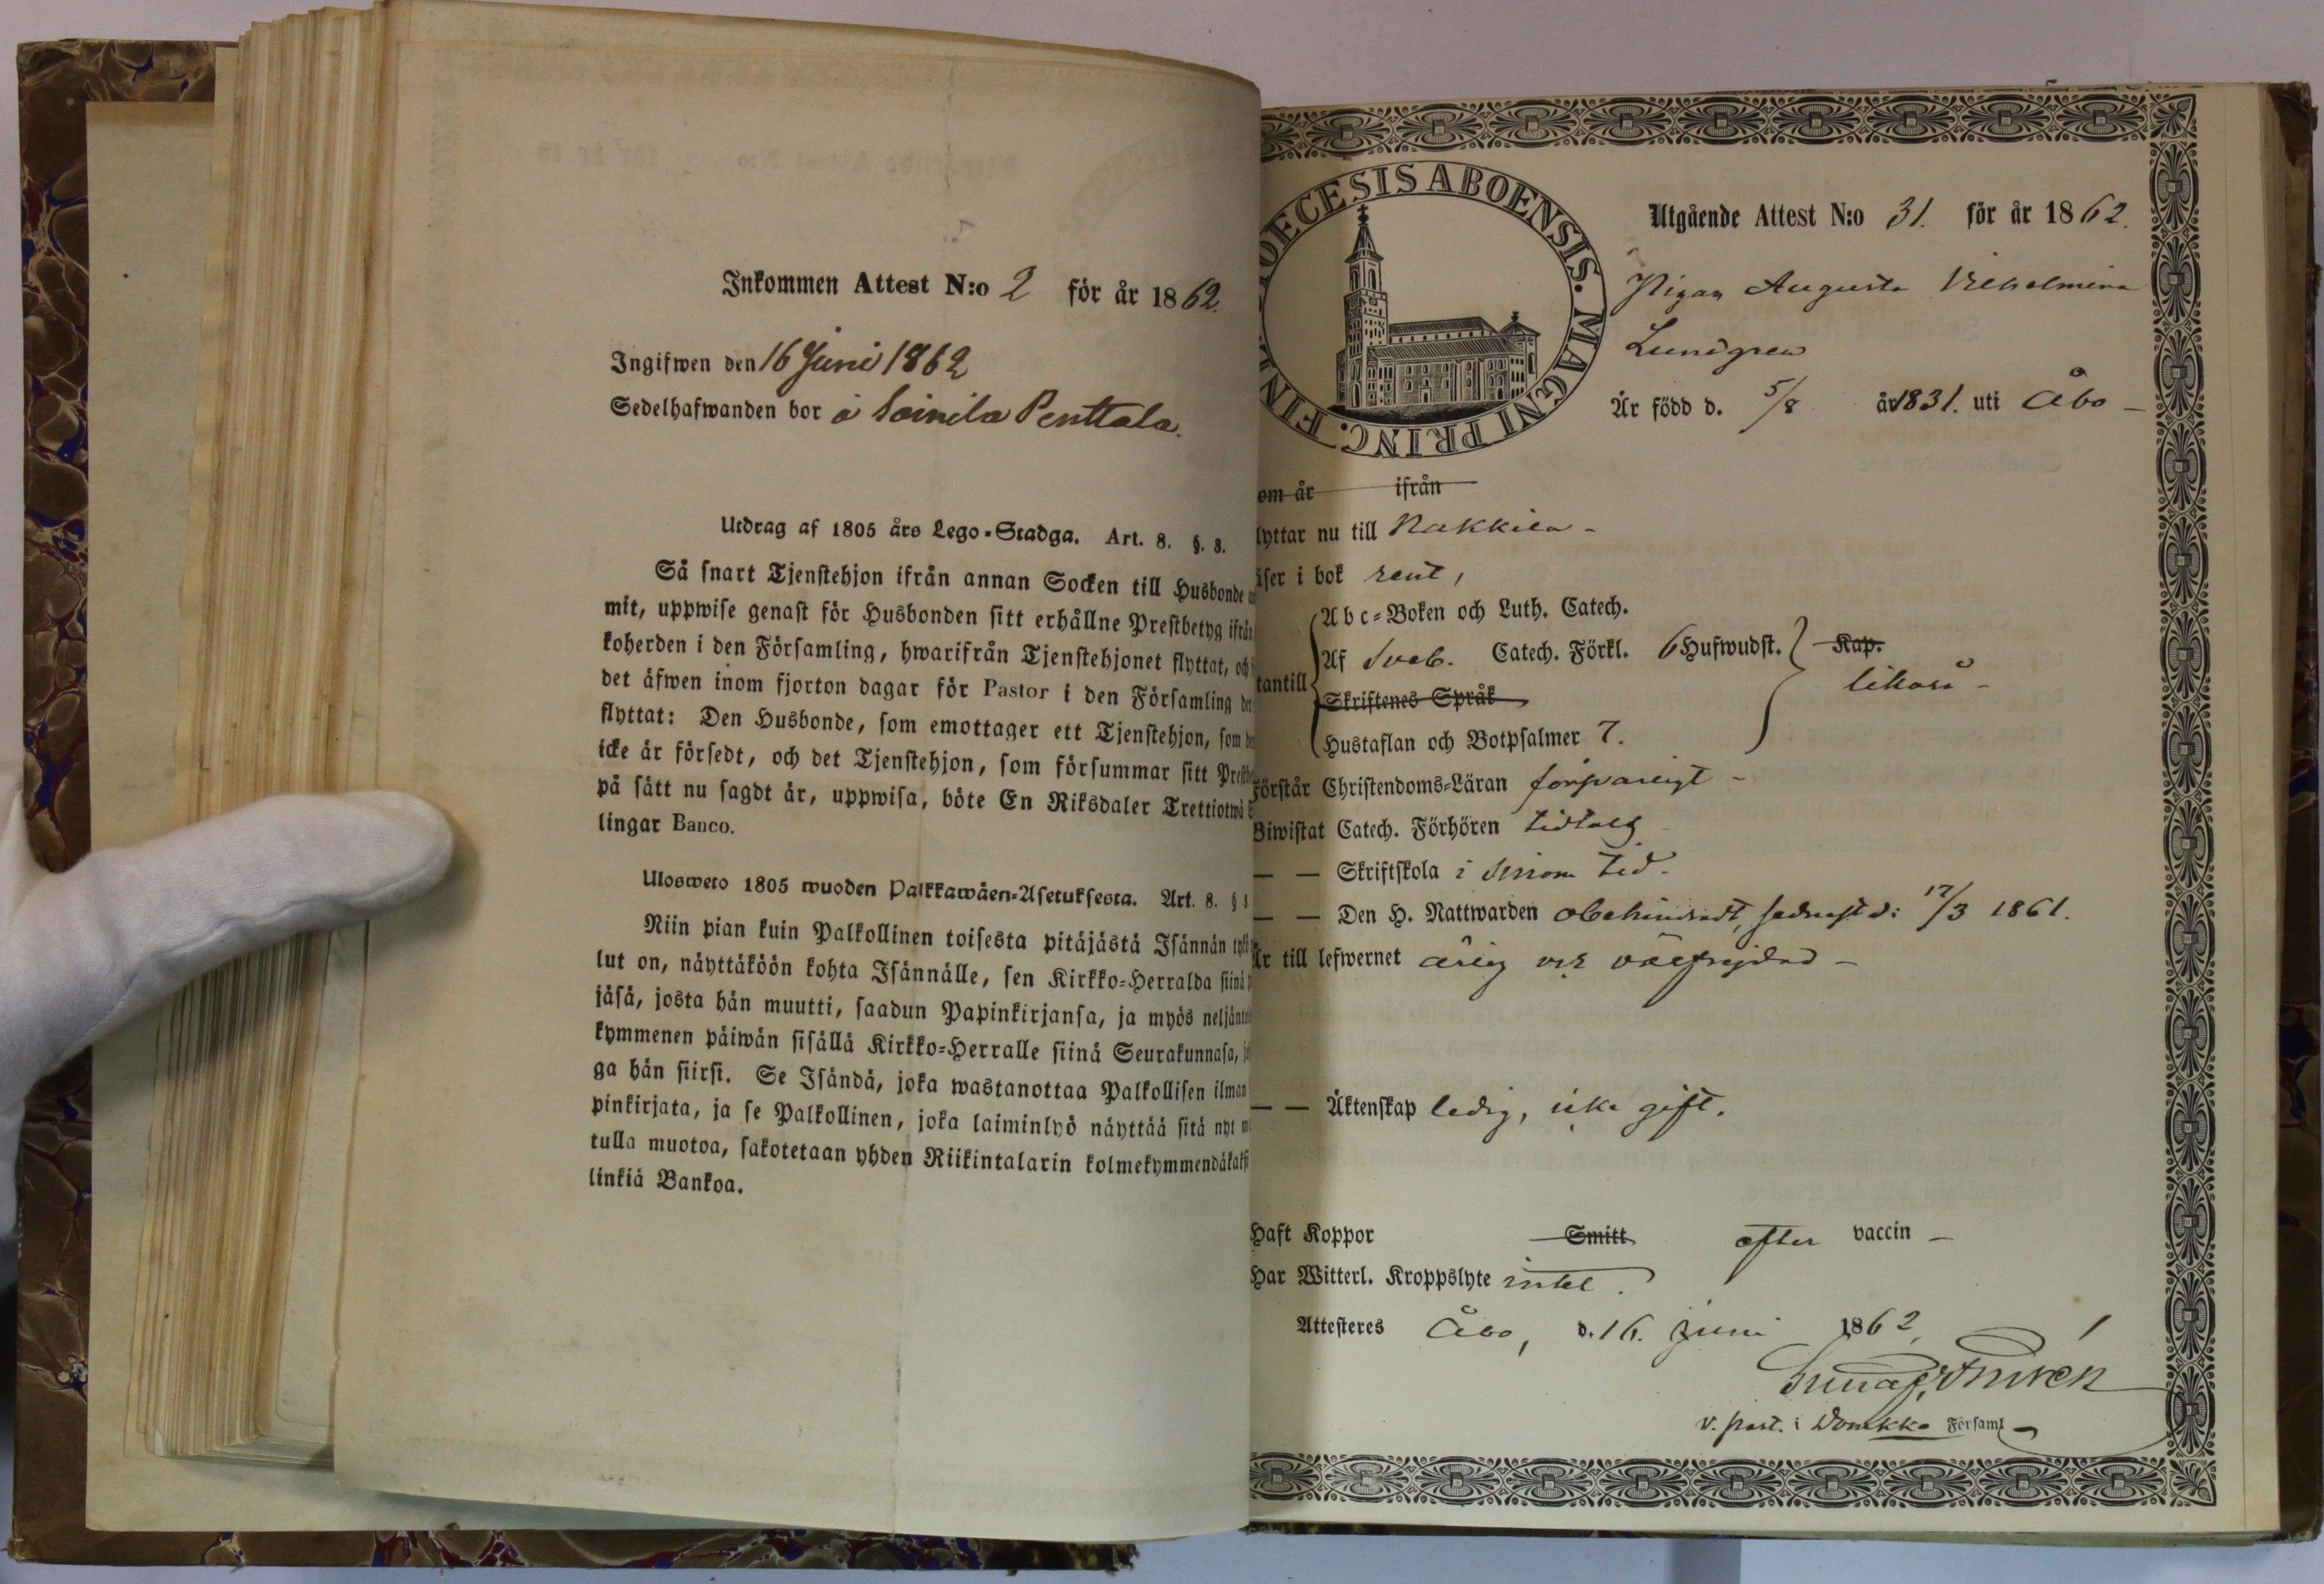 Inkommen Attest N:o 2 för år 1862.
Ingifwen den 16 Juni 1862
Sedelhafwanden bor å Soinila Penttala.
Utdrag af 1805 års Lego-Stadga. Art. 8. §. 8.
Så snart Tjenstehjon ifrån annan Socken till Husbonde
mit, uppwise genast för Husbonden sitt erhållne Prestbetyg ifrån
koherden i den Församling, hwarifrån Tjenstehjonet flyttat, och
det äfwen inom fjorton dagar för Pastor i den Församling
flyttat: Den Husbonde, som emottager ett Tjenstehjon, som
icke är försedt, och det Tjenstehjon, som försummar sitt
på sätt nu sagdt är, uppwisa, böte En Riksdaler Trettiotwå
lingar Banco.
Ulosweto 1805 wuoden Palkkawäen-Asetuksesta. Art. 8. §
Niin pian kuin Palkollinen toisesta pitäjästä Isännän
lut on, näyttäköön kohta Isännälle, sen Kirkko-Herralda siinä
jäsä, josta hän muutti, saadun Papinkirjansa, ja myös
kymmenen päiwän sisällä Kirkko-Herralle siinä Seurakunnasa,
ga hän siirsi. Se Isändä, joka wastanottaa Palkollisen ilman
pinkirjata, ja se Palkollinen, joka laiminlyö näyttää sitä nyt
tulla muotoa, sakotetaan yhden Riikintalarin
linkiä Bankoa.
DIOECESIS ABOENSIS. MAGNI PRINC. FINL.
Utgående Attest N:o 31. för år 1862.
Pigan Augusta Vilhelmina
Lundgren
Är född d. 5/8 år 1831. uti Åbo
om år ifrån
lyttar nu till Nakkila
äser i bok rent,
Abc-Boken och Luth. Catech.
Af Sveb. Catech. Förkl. 6 Hufwudst. Kap.
tantill likaså
Skriftenes Språk
Hustaflan och Botpsalmer 7.
Förstår Christendoms-Läran försvarligt
Biwistat Catech. Förhören
— — Skriftskola i sinom tid.
— — Den H. Nattwarden obehindradt, sednast d: 17/3 1861.
Är till lefwernet ärlig och välfrejdad
— — Äktenskap ledig, icke gift.
Haft Koppor Smitt efter vaccin
Har Witterl. Kroppslyte intet.
Attesteres Åbo, d. 16. Juni 1862,
v. past. i Domkko Församl